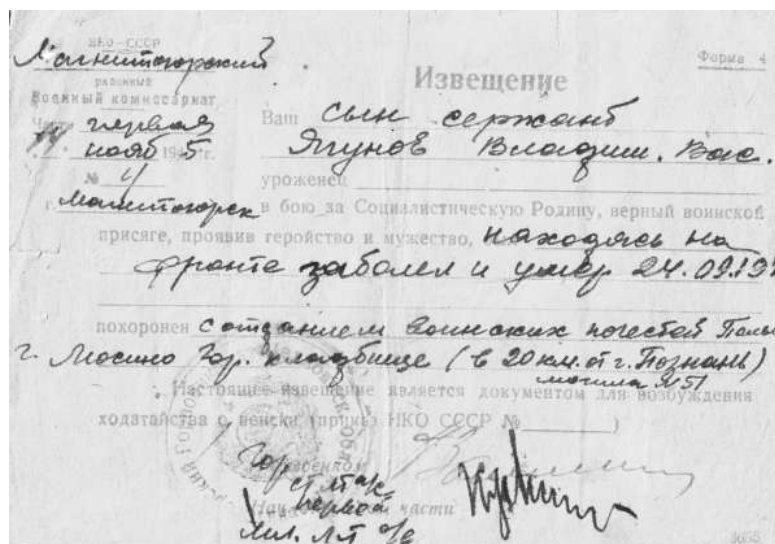 НКО-СССР
Магнитогорский
районный
Военный комиссариат
Форма 4
Извещение
первая
нояб 5 194 г.
№
Ваш сын сержант
Ягунов Владим. Вас.
уроженец
г. Магнитогорск
в бою за Социалистическую Родину, верный воинской
присяге, проявив геройство и мужество, находясь на
фронте заболел и умер 24.09.19
похоронен с отданием воинских почестей
г. Мосино Гор. кладбище (в 20 км. от г. Познань)
могила №51
Настоящее извещение является документом для возбуждения
ходатайства о пенсии (приказ НКО СССР № )
Горвоенком
части